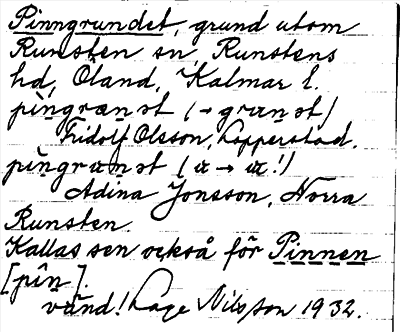 Pinngrundet, grund utom
Runsten sn, Runstens
hd, Öland, Kalmar l.
pingrænət (→ grunət)
Fridolf Olsson, Lopperstad.
pingranət (a → æ!)
Adina Jonsson, Norra
Runsten.
Kallas sen också för Pinnen
[pin].
vänd! Lage Nilsson 1932.